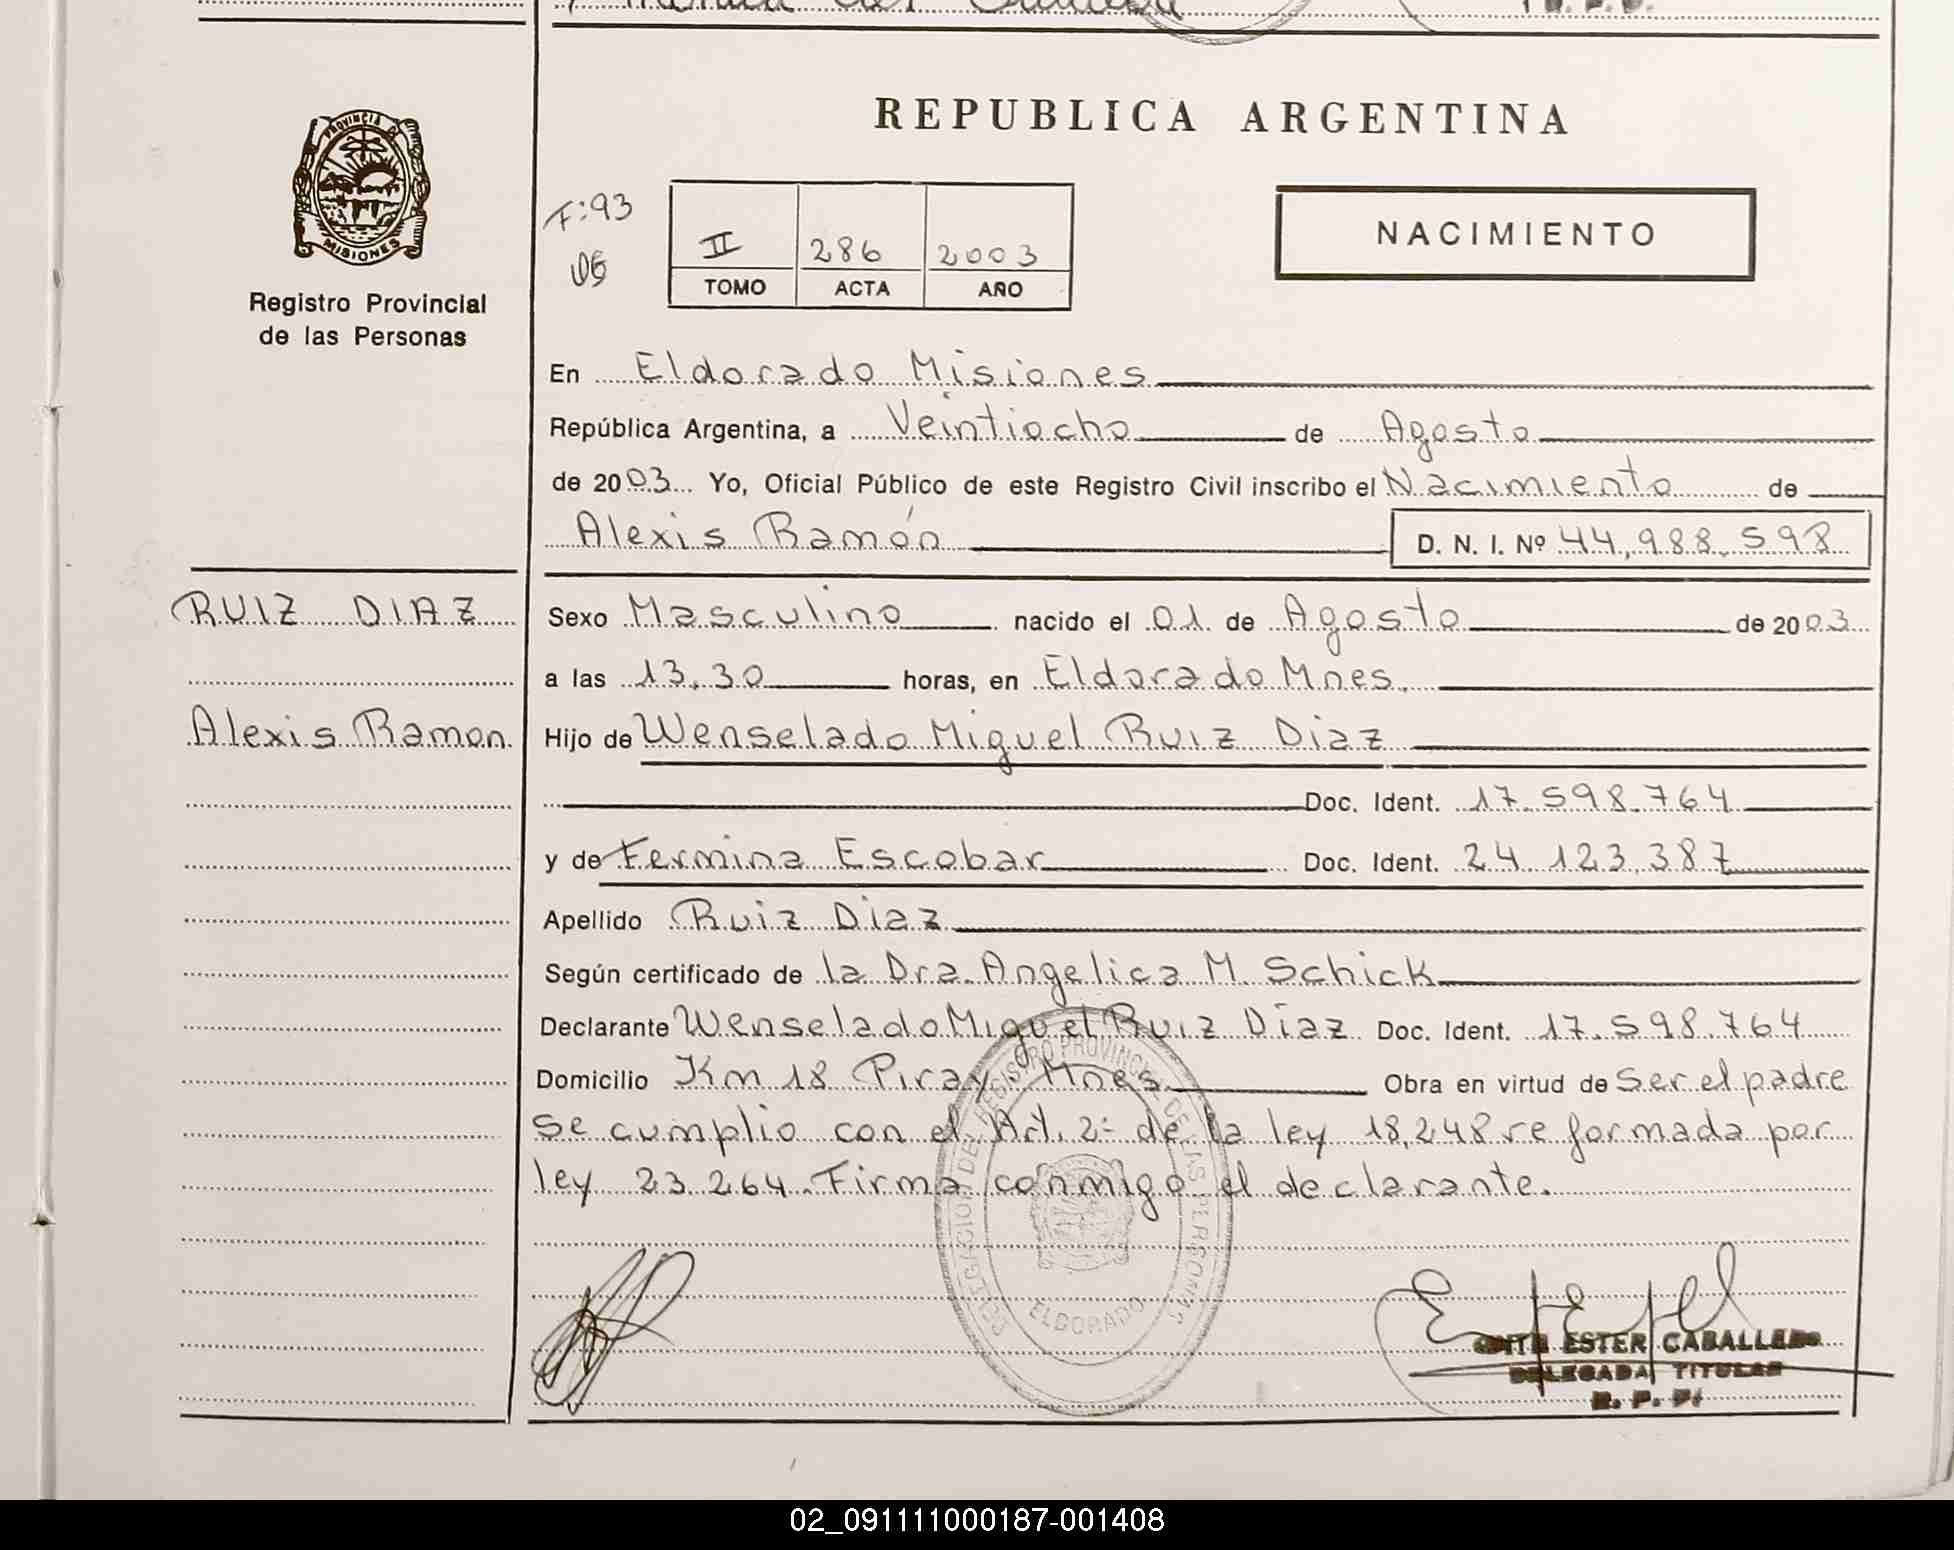 REPUBLICA ARGENTINA
PROVINCIA DE
MISIONES
Registro Provincial
de las Personas
F:93
II 286 2003
TOMO ACTA AÑO
NACIMIENTO
En Eldorado Misiones
República Argentina, a Veintiocho de Agosto
de 2003 Yo, Oficial Público de este Registro Civil inscribo el Nacimiento de
Alexis Ramón D. N. I. Nº 44,988,598
RUIZ DIAZ
Alexis Ramon
Sexo Masculino nacido el 01 de Agosto de 2003
a las 13,30 horas, en Eldorado Mnes.
Hijo de Wenselado Miguel Ruiz Diaz
Doc. Ident. 17.598.764
y de Fermina Escobar Doc. Ident. 24.123.387
Apellido Ruiz Diaz
Según certificado de la Dra. Angelica M. Schick
Declarante Wenselado Miguel Ruiz Diaz Doc. Ident. 17.598.764
Domicilio Km 18 Piray Mnes. Obra en virtud de Ser el padre
se cumplio con el Art. 2º de la ley 18,248 reformada por
ley 23.264. Firma conmigo el declarante.
DELEGACION DEL REGISTRO PROVINCIAL DE LAS PERSONAS
ELDORADO
ESTER CABALLERO
DELEGADA TITULAR
R. P. P.
02_091111000187-001408